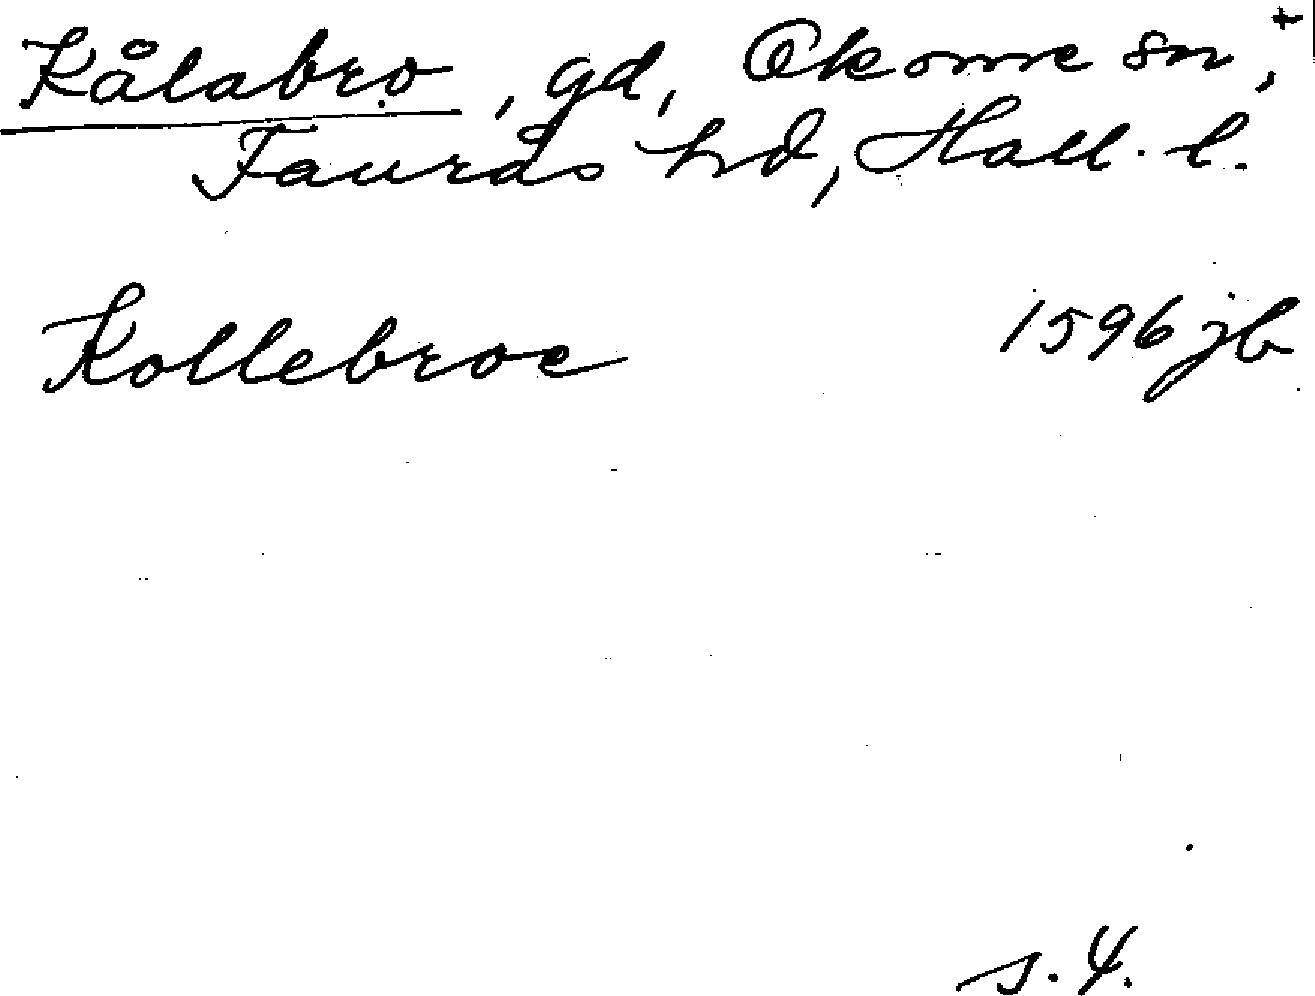 Kålabro, gd, Okome sn, +
Faurås hd, Hall. l.
Kollebroe 1596 jb
s. 4.